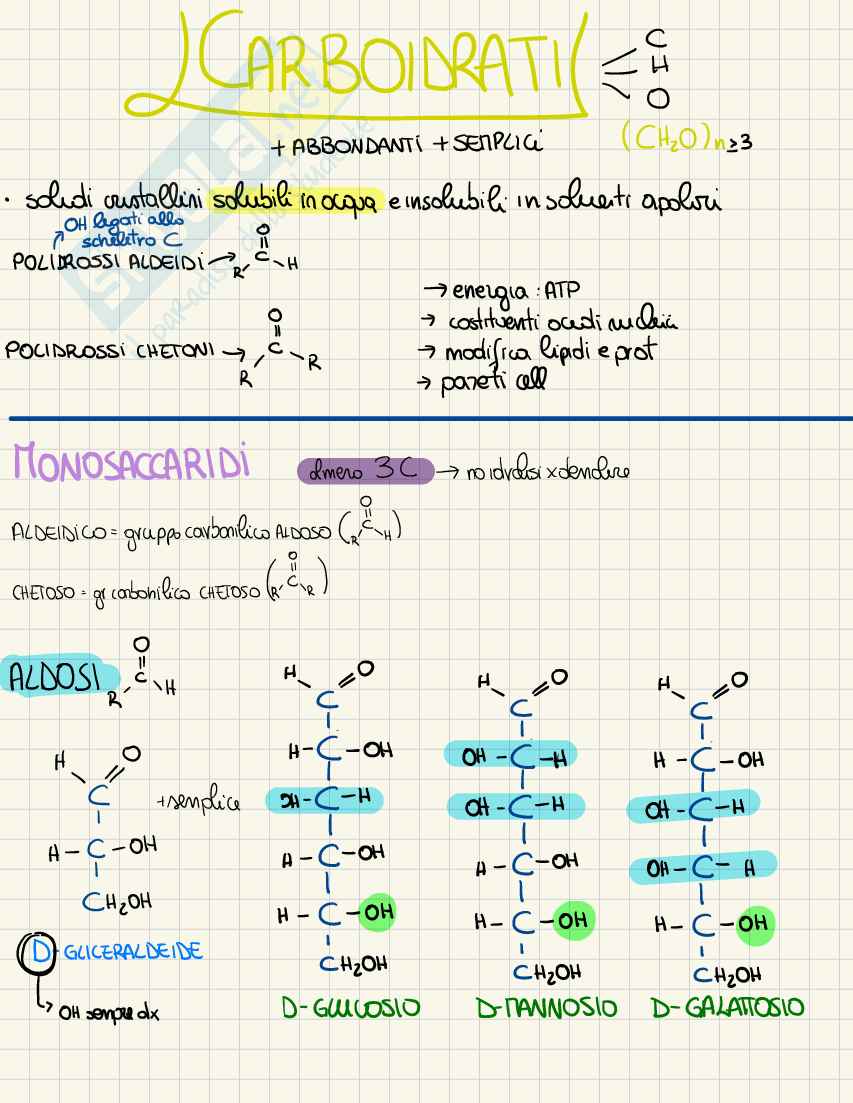 CARBOIDRATI
C
H
O
+ ABBONDANTI + SEMPLICI
(CH₂O)n≥3
· solidi cristallini solubili in acqua e insolubili in solventi apolari
OH legati allo
scheletro C
POLIDROSSI ALDEIDI →
O
C
R
H
POLIDROSSI CHETONI →
O
C
R
R
→ energia : ATP
→ costituenti acidi nucleici
→ modifica lipidi e prot
→ pareti cell
MONOSACCARIDI
almeno 3C → no idrolisi x dendire
ALDEIDICO = gruppo carbonilico ALDOSO (R C O H)
CHETOSO = gr carbonilico CHETOSO (R C O R)
ALDOSI
O
C
R
H
H
O
C
H - C - OH
CH₂OH
+ semplice
D - GLICERALDEIDE
→ OH sempre dx
H
O
C
H - C - OH
OH - C - H
H - C - OH
H - C - OH
CH₂OH
D - GLUCOSIO
H
O
C
OH - C - H
OH - C - H
H - C - OH
H - C - OH
CH₂OH
D - MANNOSIO
H
O
C
H - C - OH
OH - C - H
OH - C - H
H - C - OH
CH₂OH
D - GALATTOSIO